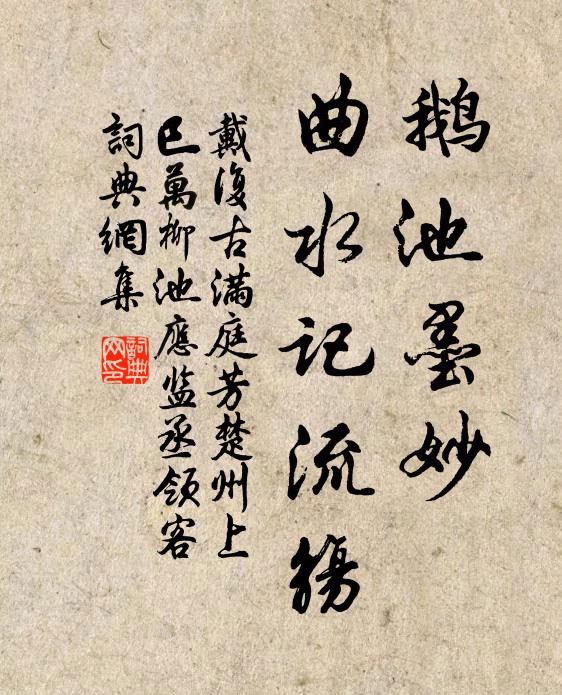 鵝池墨妙
曲水記流觴
戴復古滿庭芳楚州上
巳萬柳池應监丞領客
詞典網集
詞典网印